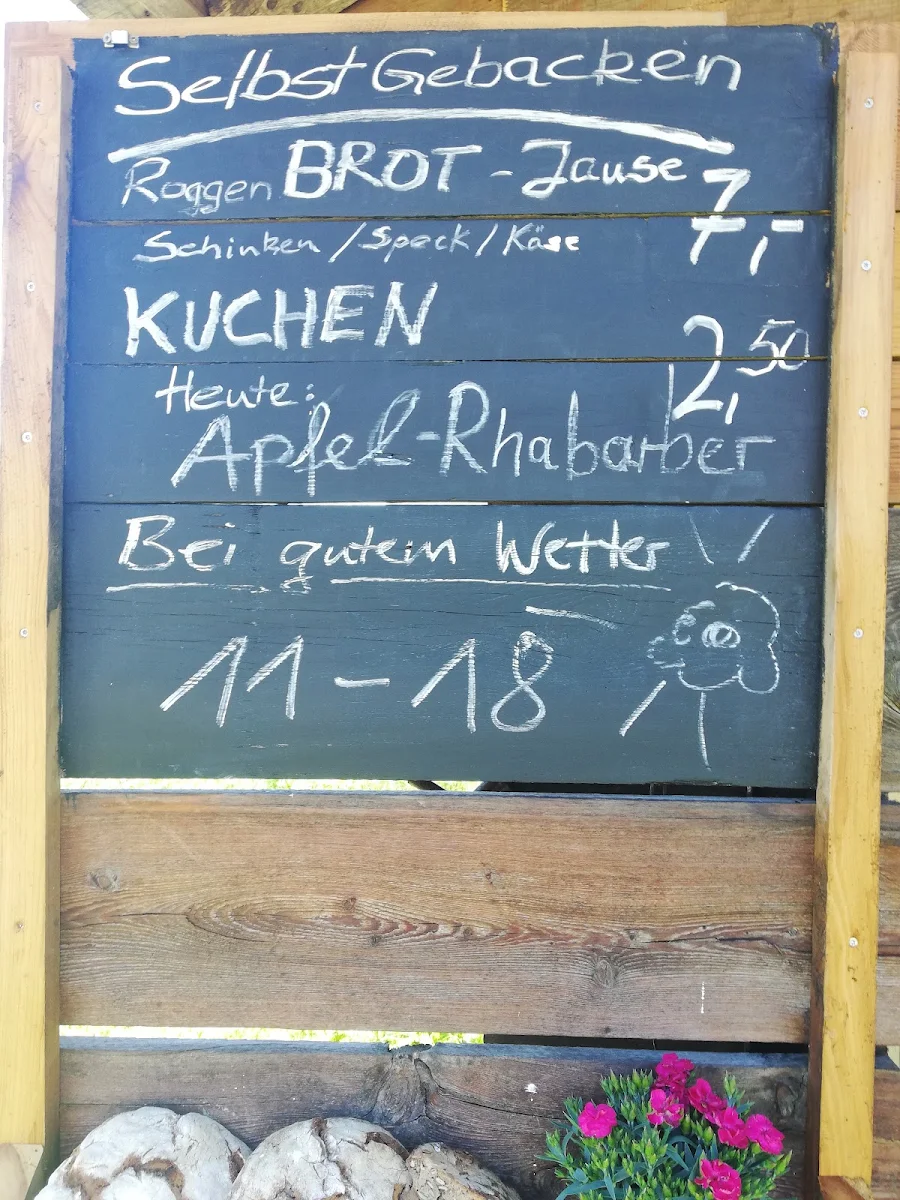 Selbst Gebacken
Roggen BROT - Jause 7,-
Schinken / Speck / Käse
KUCHEN 2,50
Heute:
Apfel-Rhabarber
Bei gutem Wetter
11 - 18